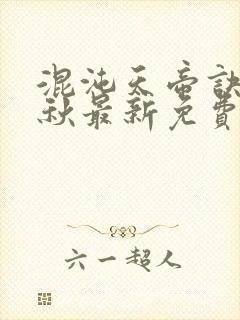 混沌天帝訣
秋最新免費
六一超人